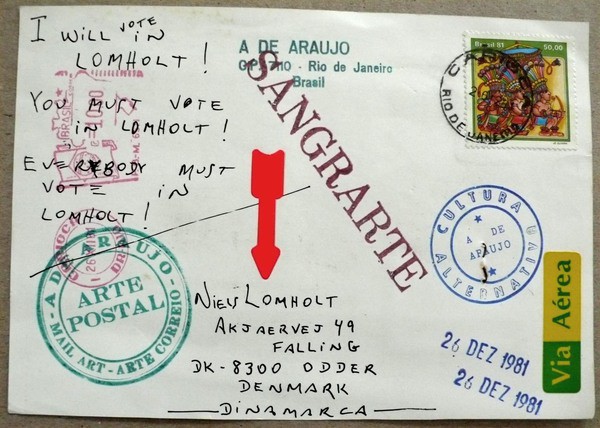 I WILL VOTE IN
LOMHOLT !
YOU MUST VOTE
IN LOMHOLT !
EVEREBODY MUST
VOTE IN
LOMHOLT !
A DE ARAUJO
Rio de Janeiro
Brasil
Brasil 81 50,00
RIO DE JANEIRO
BRASIL
SANGRARTE
CULTURA VIVA
ALTERNATIVA
A DE
ARAUJO
A DE ARAUJO
ARTE
POSTAL
MAIL ART - ARTE CORREIO
NIELS LOMHOLT
AKJAERVEJ 49
FALLING
DK-8300 ODDER
DENMARK
DINAMARCA
Via Aérea
26 DEZ 1981
26 DEZ 1981